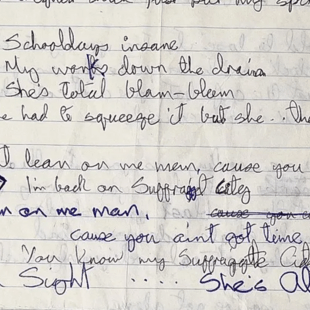 my spa
Schooldays insane
My work down the drain
She's total blam-bleem
e had to squeeze it but she.. the
lean on me man, cause you
I'm back on Suffragt City
n on me man, cause you
cause you ain't got time
You know my Suffragette Cit
Sight ..... She's Al